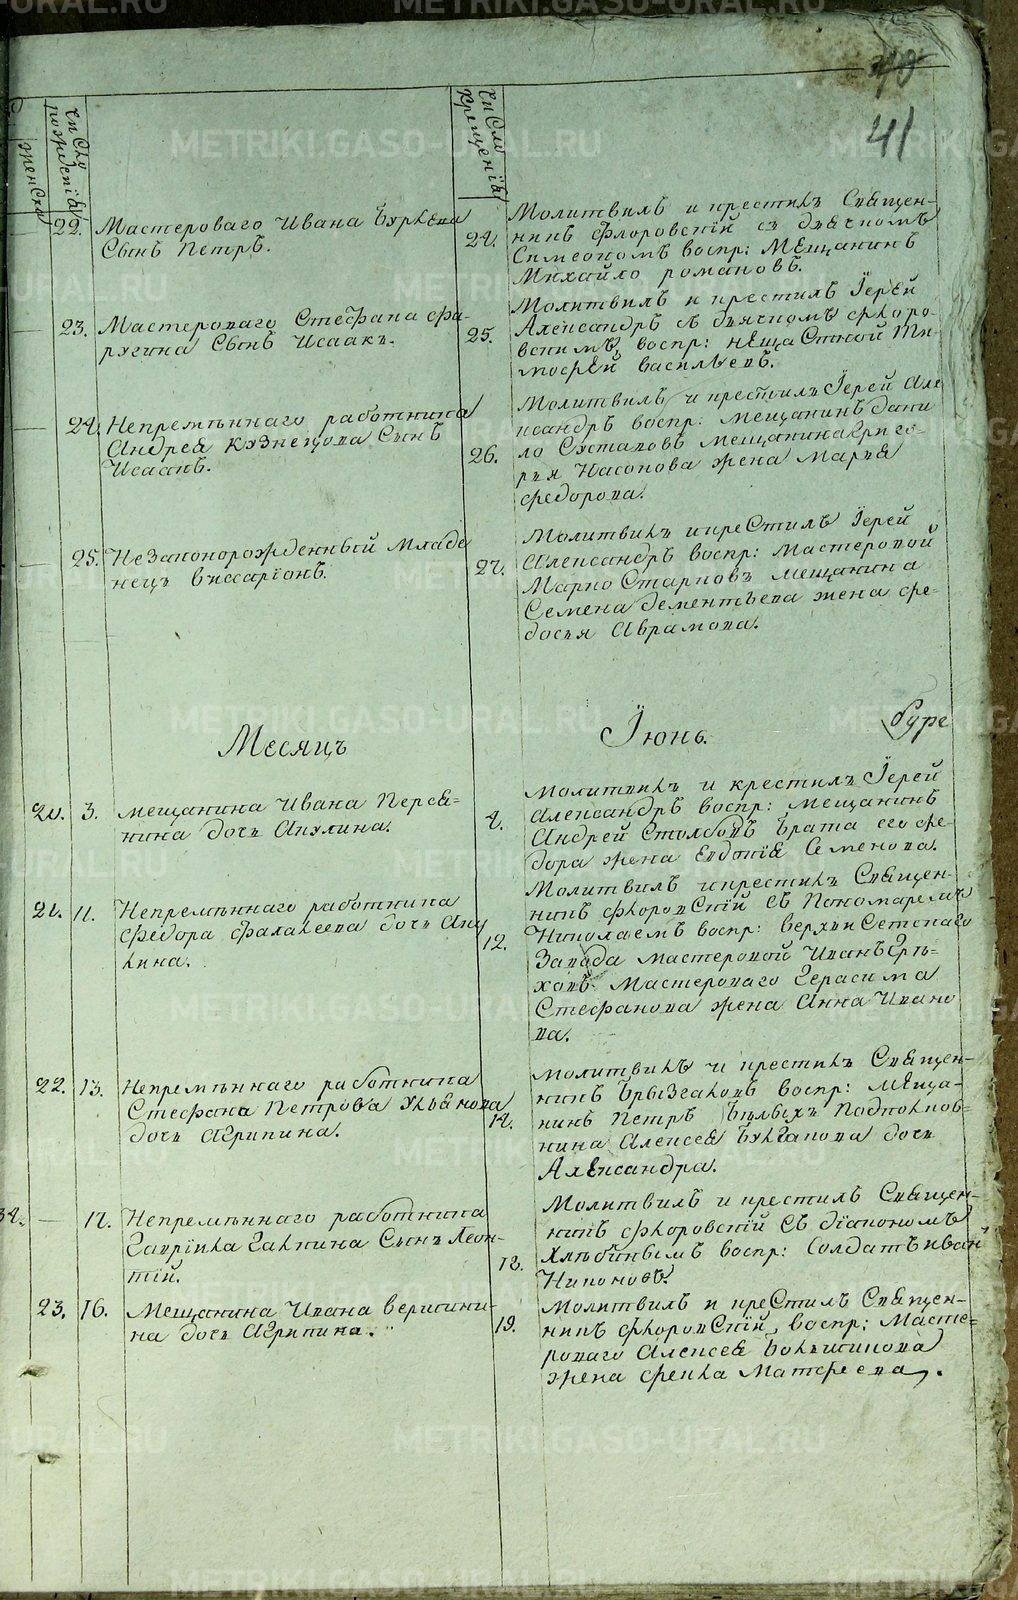 40
41
женска
Число
рождениѧ
Число
крещениѧ
22. Мастероваго Ивана Буркова
Сынъ Петръ.
24. Молитвилъ и крестилъ Священ-
никъ Флоровскій съ дьячкомъ
Симеономъ воспр: Мещанинъ
Михайло романовъ.
23. Мастероваго Стефана Фа-
ругина Сынъ Исаакъ.
25. Молитвилъ и крестилъ Іерей
Александръ съ дьячкомъ Флоро-
вскимъ воспр: нещастной Ти-
мофей васильевъ.
24. Непремѣннаго работника
Андрея кузнецова Сынъ
Исаакъ.
26. Молитвилъ и крестилъ Іерей Але
ксандръ воспр: мещанинъ дани
ло Сустановъ мещанина Григо-
рья Насонова жена Марья
федорова.
25. Незаконорожденный Младе
нецъ виссаріонъ.
27. Молитвилъ и крестилъ Іерей
Александръ воспр: Мастеровой
Марко Старковъ мещанина
Семена дементьева жена фе-
досья Аврамова.
Месяцъ Іюнь.
20. 3. мещанина Ивана Персѧ-
нина дочь Акулина.
4. Молитвилъ и крестилъ Іерей
Александръ воспр: Мещанинъ
Андрей Столбовъ брата его фе-
дора жена Евдокія Семенова.
21. 11. Непремѣннаго работника
федора фалалеева дочь Аку
лина.
12. Молитвилъ и крестилъ Священ-
никъ флоровскій съ Пономаремъ
Николаемъ воспр: верхъ исетскаго
Завода мастеровой Иванъ Грѣ-
ховъ Мастероваго Герасима
Стефанова жена Анна Ивано
ва.
22. 13. Непремѣннаго работника
Стефана Петрова Ульянова
дочь Агрипина.
14. Молитвилъ и крестилъ Священ-
никъ Брызгаловъ воспр: Меща-
нинъ Петръ Бѣлыхъ Подполков-
ника Алексея Булгакова дочь
Александра.
34. 17. Непремѣннаго работника
Гаврїила Галкина Сынъ Леон-
тій.
18. Молитвилъ и крестилъ Священ-
никъ флоровскій Съ діакономъ
Хлѣбинымъ воспр: Солдатъ иван
Никоновъ.
23. 16. Мещанина Ивана веригини-
на дочь Агрипина.
19. Молитвилъ и крестилъ Священ-
никъ флоровскій, воспр: Масте-
роваго Алексея
жена фекла Матфеева.